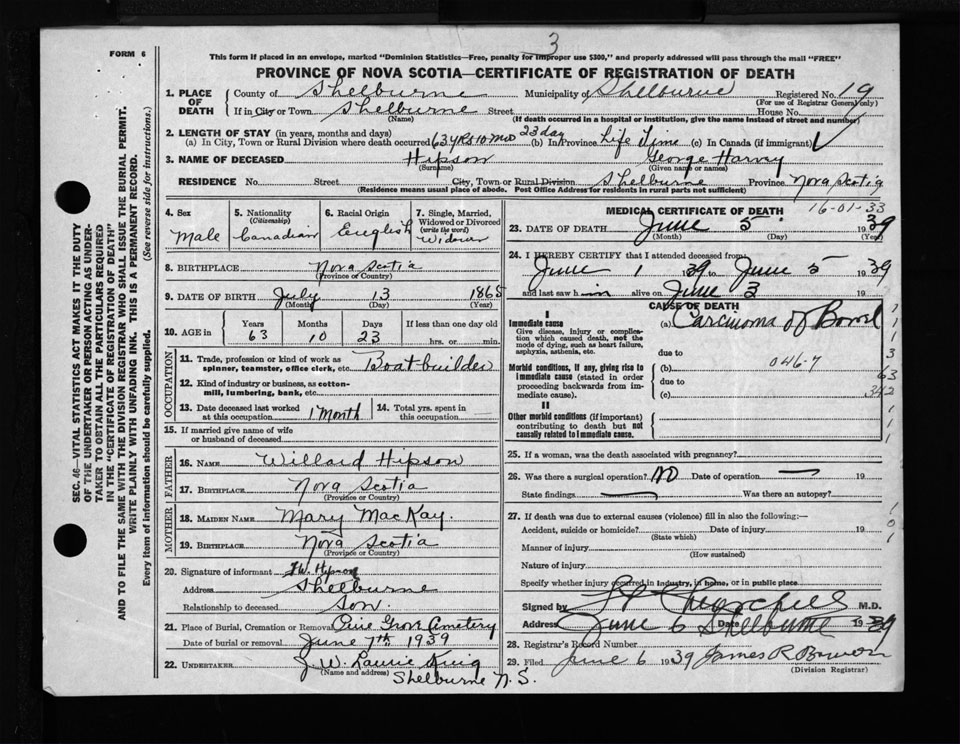 3
FORM 6
This form if placed in an envelope, marked "Dominion Statistics—Free, penalty for improper use $300," and properly addressed will pass through the mail "FREE"
PROVINCE OF NOVA SCOTIA—CERTIFICATE OF REGISTRATION OF DEATH
1. PLACE OF DEATH
County of Shelburne Municipality of Shelburne Registered No. 19
(For use of Registrar General only)
If in City or Town Shelburne Street House No.
(Name) (If death occurred in a hospital or institution, give the name instead of street and number)
2. LENGTH OF STAY (in years, months and days)
(a) In City, Town or Rural Division where death occurred 63 yrs 10 mos 23 day (b) In Province Life Time (c) In Canada (if immigrant)
3. NAME OF DECEASED Hipson George Harvey
(Surname) (Given name or names)
RESIDENCE No. Street City, Town or Rural Division Shelburne Province Nova Scotia
(Residence means usual place of abode. Post Office Address for residents in rural parts not sufficient)
4. Sex
Male
5. Nationality
(Citizenship)
Canadian
6. Racial Origin
English
7. Single, Married, Widowed or Divorced
(write the word)
Widower
8. BIRTHPLACE Nova Scotia
(Province or Country)
9. DATE OF BIRTH July 13 1865
(Month) (Day) (Year)
10. AGE in
Years Months Days If less than one day
63 10 23 hrs. or min.
OCCUPATION
11. Trade, profession or kind of work as
spinner, teamster, office clerk, etc. Boatbuilder
12. Kind of industry or business, as cotton-
mill, lumbering, bank, etc.
13. Date deceased last worked
at this occupation 1 Month
14. Total yrs. spent in
this occupation
15. If married give name of wife
or husband of deceased
FATHER
16. NAME Willard Hipson
17. BIRTHPLACE Nova Scotia
(Province or Country)
MOTHER
18. MAIDEN NAME Mary MacKay.
19. BIRTHPLACE Nova Scotia
(Province or Country)
20. Signature of informant W. Hipson
Address Shelburne
Relationship to deceased Son.
21. Place of Burial, Cremation or Removal Pine Grove Cemetery
Date of burial or removal June 7th 1939
22. UNDERTAKER J. W. Laurie King
(Name and address)
Shelburne N.S.
MEDICAL CERTIFICATE OF DEATH
16-01-33
23. DATE OF DEATH June 5 1939
(Month) (Day) (Year)
24. I HEREBY CERTIFY that I attended deceased from
June 1 1939 to June 5 1939
and last saw him alive on June 3 19
CAUSE OF DEATH
I
Immediate cause
Give disease, injury or complica-
tion which caused death, not the
mode of dying, such as heart failure,
asphyxia, asthenia, etc.
(a) Carcinoma of Bowel
due to
Morbid conditions, if any, giving rise to
immediate cause (stated in order
proceeding backwards from im-
mediate cause).
(b) 046-7
due to
(c)
II
Other morbid conditions (if important)
contributing to death but not
causally related to immediate cause.
1
1
1
3
63
342
1
1
1
25. If a woman, was the death associated with pregnancy?
26. Was there a surgical operation? no Date of operation — 19
State findings — Was there an autopsy?
27. If death was due to external causes (violence) fill in also the following:—
Accident, suicide or homicide? Date of injury 19
(State which)
Manner of injury
(How sustained)
Nature of injury
Specify whether injury occurred in industry, in home, or in public place
1
0
1
Signed by Churchill M.D.
Address Shelburne Date June 6 1939
28. Registrar's Record Number
29. Filed June 6 1939 James R Bower
(Division Registrar)
SEC. 46—VITAL STATISTICS ACT MAKES IT THE DUTY
OF THE UNDERTAKER OR PERSON ACTING AS UNDER-
TAKER TO OBTAIN ALL THE PARTICULARS REQUIRED
IN THE "CERTIFICATE OF REGISTRATION OF DEATH"
AND TO FILE THE SAME WITH THE DIVISION REGISTRAR WHO SHALL ISSUE THE BURIAL PERMIT.
WRITE PLAINLY WITH UNFADING INK. THIS IS A PERMANENT RECORD.
Every item of information should be carefully supplied. (See reverse side for instructions.)